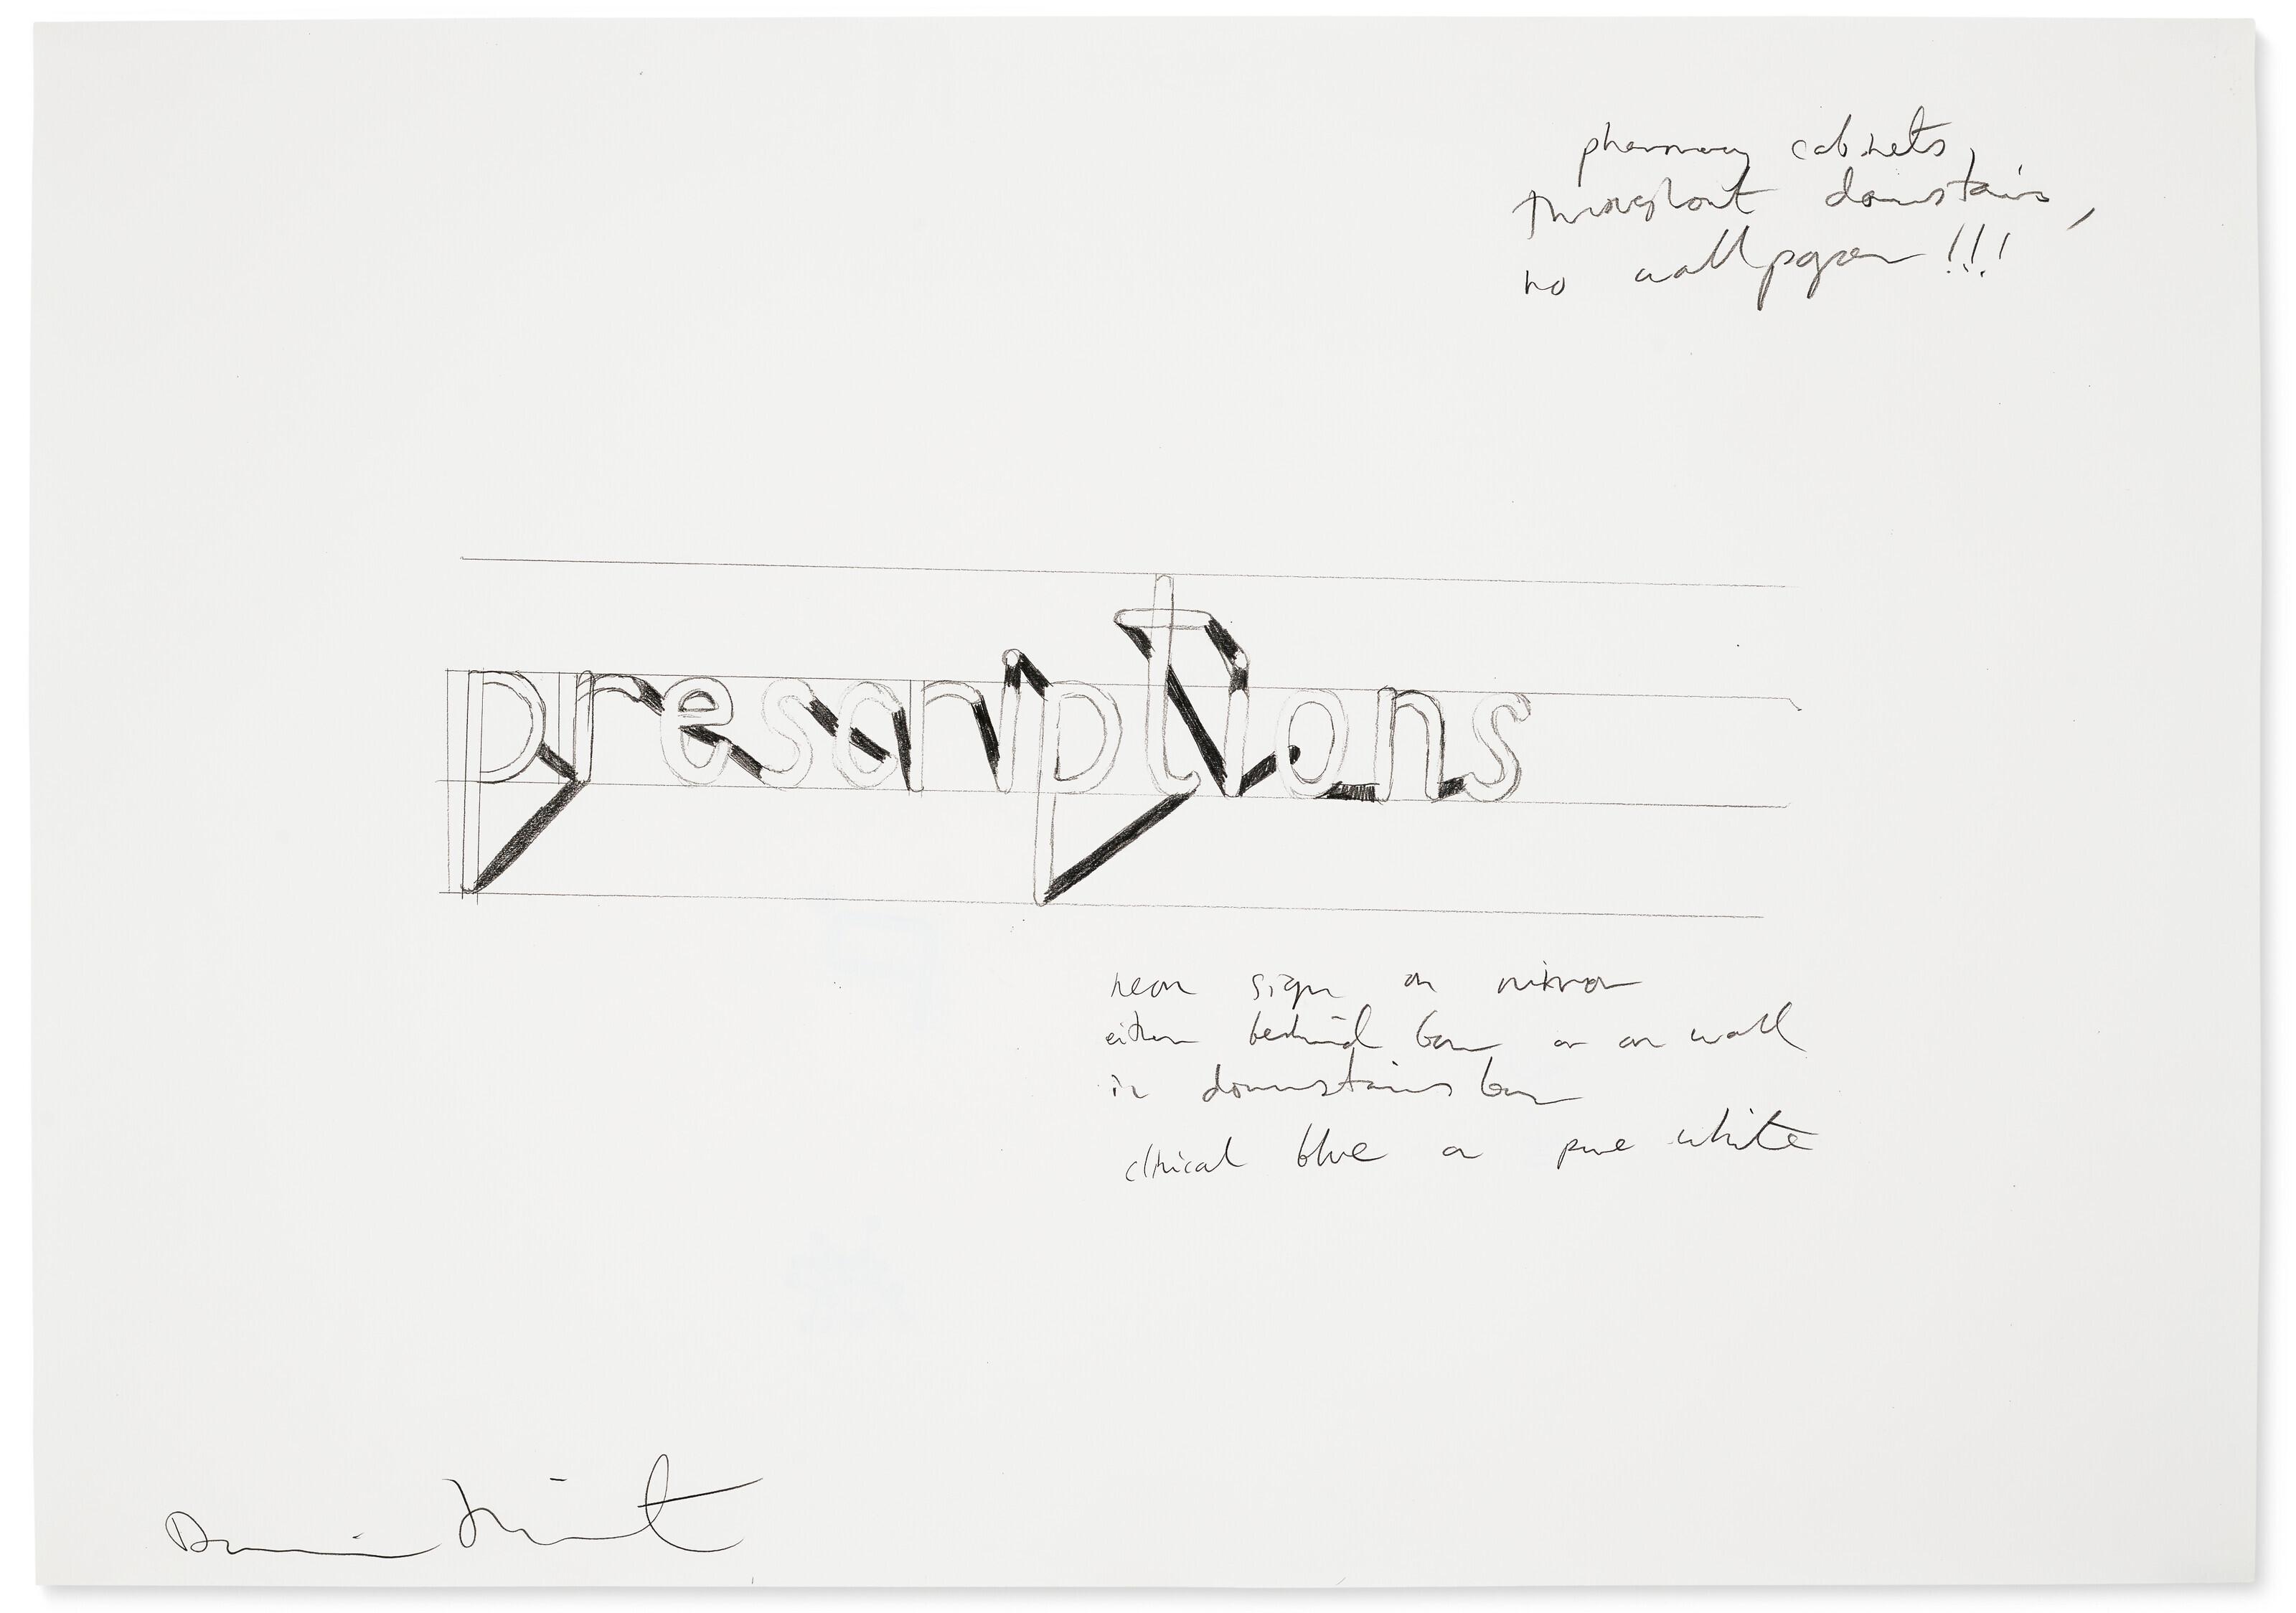 pharmacy cabinets,
throughout downstairs,
no wallpaper!!!
prescriptions
neon sign on mirror
either behind bar or on wall
in downstairs bar
clinical blue or pure white
Damien Hirst